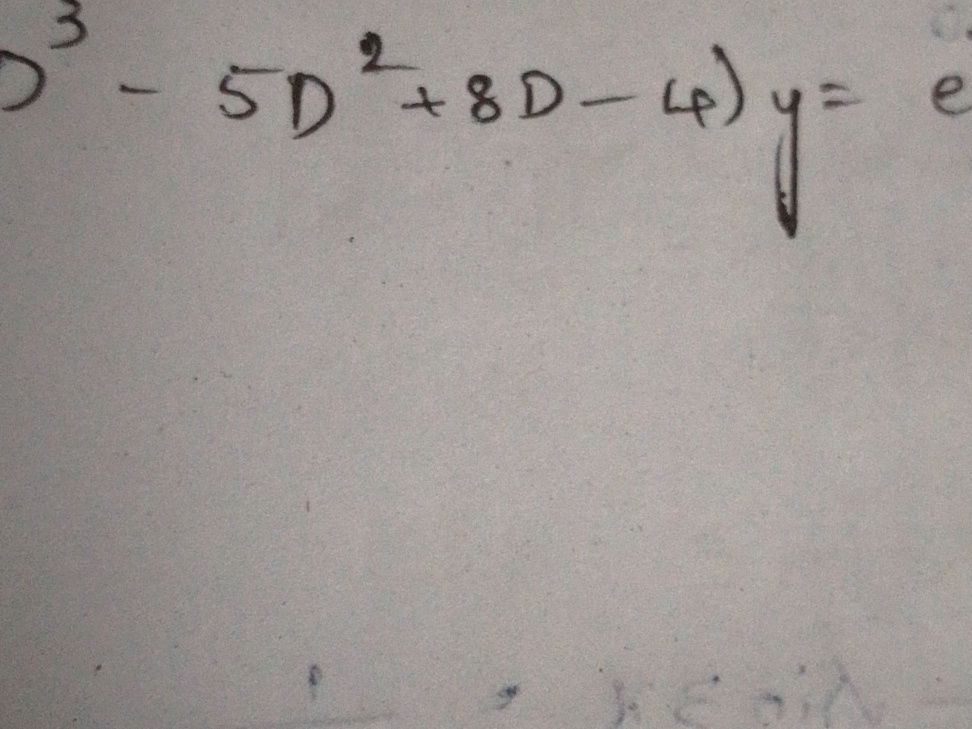 D³ - 5D² + 8D - 4) y = e